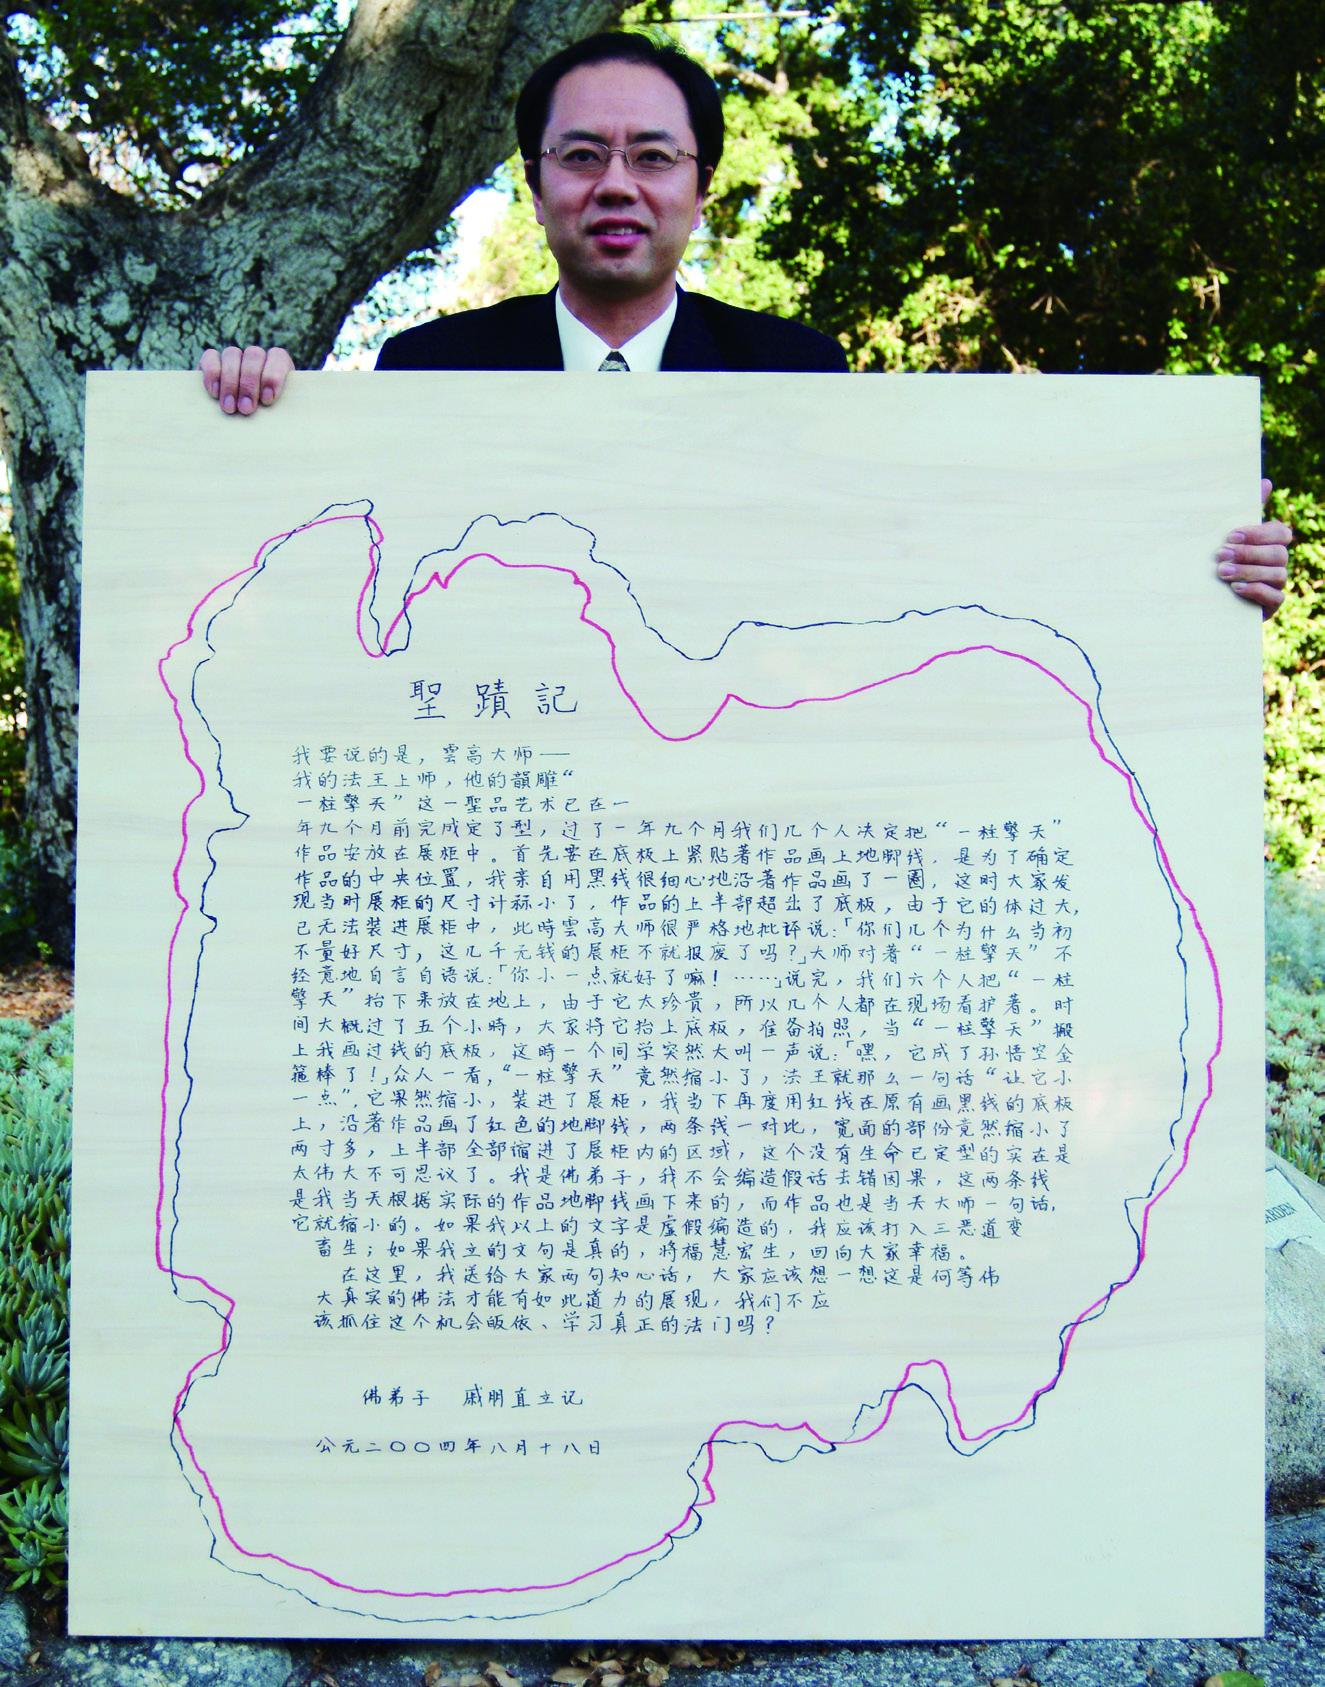 聖蹟記
我要说的是，雲高大师——
我的法王上师，他的韻雕“
一柱擎天”这一聖品艺术已在一
年九个月前完成定了型，过了一年九个月我们几个人决定把“一柱擎天”
作品安放在展柜中。首先要在底板上紧贴著作品画上地脚线，是为了确定
作品的中央位置，我亲自用黑线很细心地沿著作品画了一圈，这时大家发
现当时展柜的尺寸计称小了，作品的上半部超出了底板，由于它的体过大，
已无法装进展柜中，此時雲高大师很严格地批评说：「你们几个为什么当初
不量好尺寸，这几千元钱的展柜不就报废了吗？」大师对著“一柱擎天”不
经意地自言自语说：「你小一点就好了嘛！……」说完，我们六个人把“一柱
擎天”抬下来放在地上，由于它太珍贵，所以几个人都在现场看护著。时
间大概过了五个小時，大家将它抬上底板，准备拍照，当“一柱擎天”搬
上我画过线的底板，这時一个同学突然大叫一声说：「嘿，它成了孙悟空金
箍棒了！」众人一看，“一柱擎天”竟然缩小了，法王就那么一句话“让它小
一点”，它果然缩小，装进了展柜，我当下再度用红线在原有画黑线的底板
上，沿著作品画了红色的地脚线，两条线一对比，宽面的部份竟然缩小了
两寸多，上半部全部缩进了展柜内的区域，这个没有生命已定型的实在是
太伟大不可思议了。我是佛弟子，我不会编造假话去错因果，这两条线
是我当天根据实际的作品地脚线画下来的，而作品也是当天大师一句话，
它就缩小的。如果我以上的文字是虚假编造的，我应该打入三恶道变
畜生；如果我立的文句是真的，将福慧宏生，回向大家幸福。
在这里，我送给大家两句知心话，大家应该想一想这是何等伟
大真实的佛法才能有如此道力的展现，我们不应
该抓住这个机会皈依、学习真正的法门吗？
佛弟子 戚朋直立记
公元二〇〇四年八月十八日